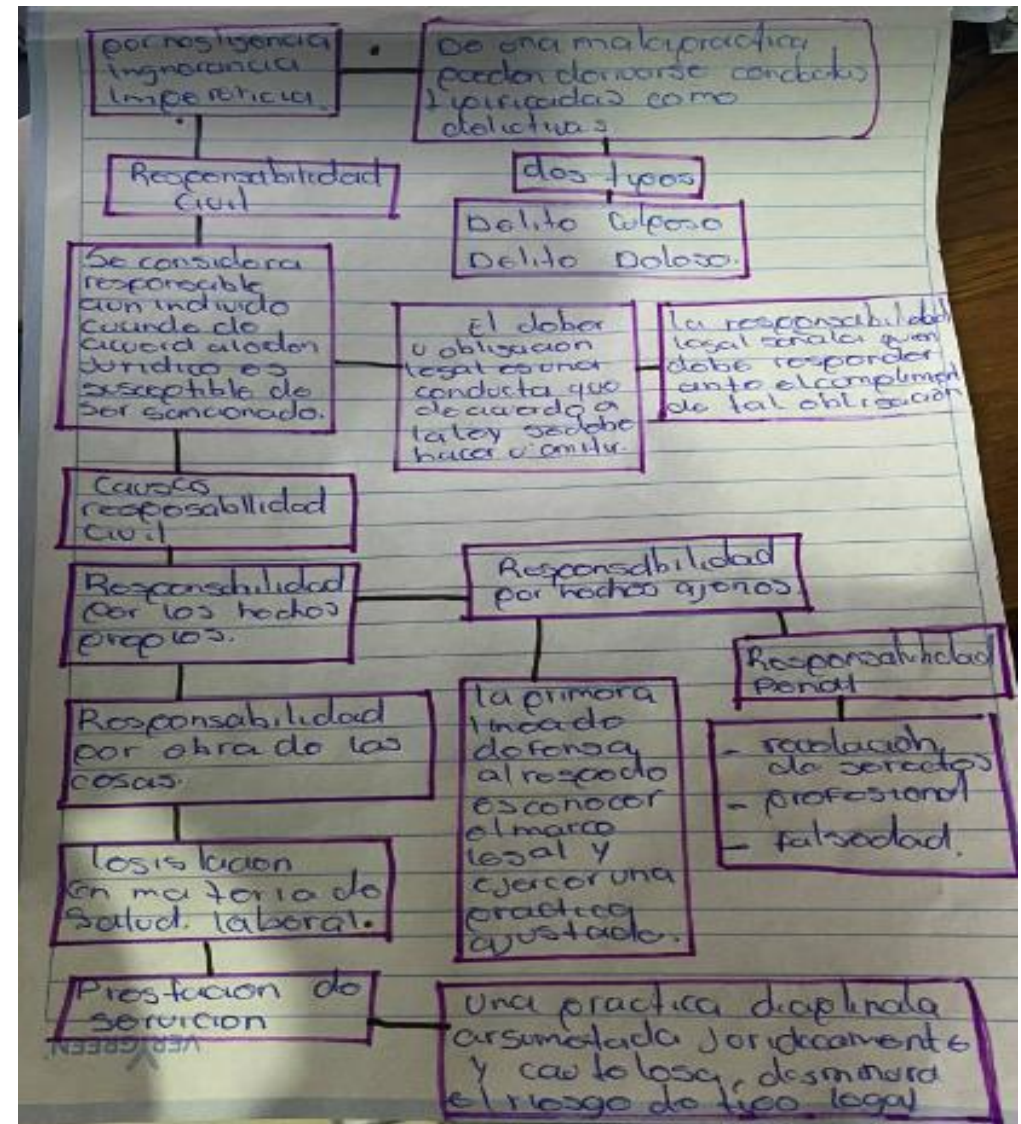 por negligencia
ingnorancia
imperericia.
De una mala practica
pueden derivarse conductas
tipificadas como
delictivas
Responsabilidad
Civil
dos tipos
Delito Culposo
Delito Doloso.
Se considera
responsable
aun individo
cuando de
acuord alodon
Juridico es
susceptible de
ser sancionado.
El deber
u obligacion
legal es una
conducta que
de acuerdo a
la ley se debe
hacer o omitir.
la responsabilidad
legal señala quien
debe responder
ante el cumpliment
de tal obligación
Causas
resposabilidad
Civil
Responsabilidad
por los hechos
propios.
Responsabilidad
por hechos ajenos
Responsabilidad
por obra de las
cosas.
la primera
linea de
defensa
al respecto
es conocer
el marco
legal y
ejercer una
practica
ajustada.
Responsabilidad
Penal
- revelación
de secretos
- profesional
- falsedad.
Legislacion
en materia de
Salud. laboral.
Prestacion de
servicion
Una practica
juridicamente
y cautelosa, desminura
el riesgo de tipo legal
VERYGREEN